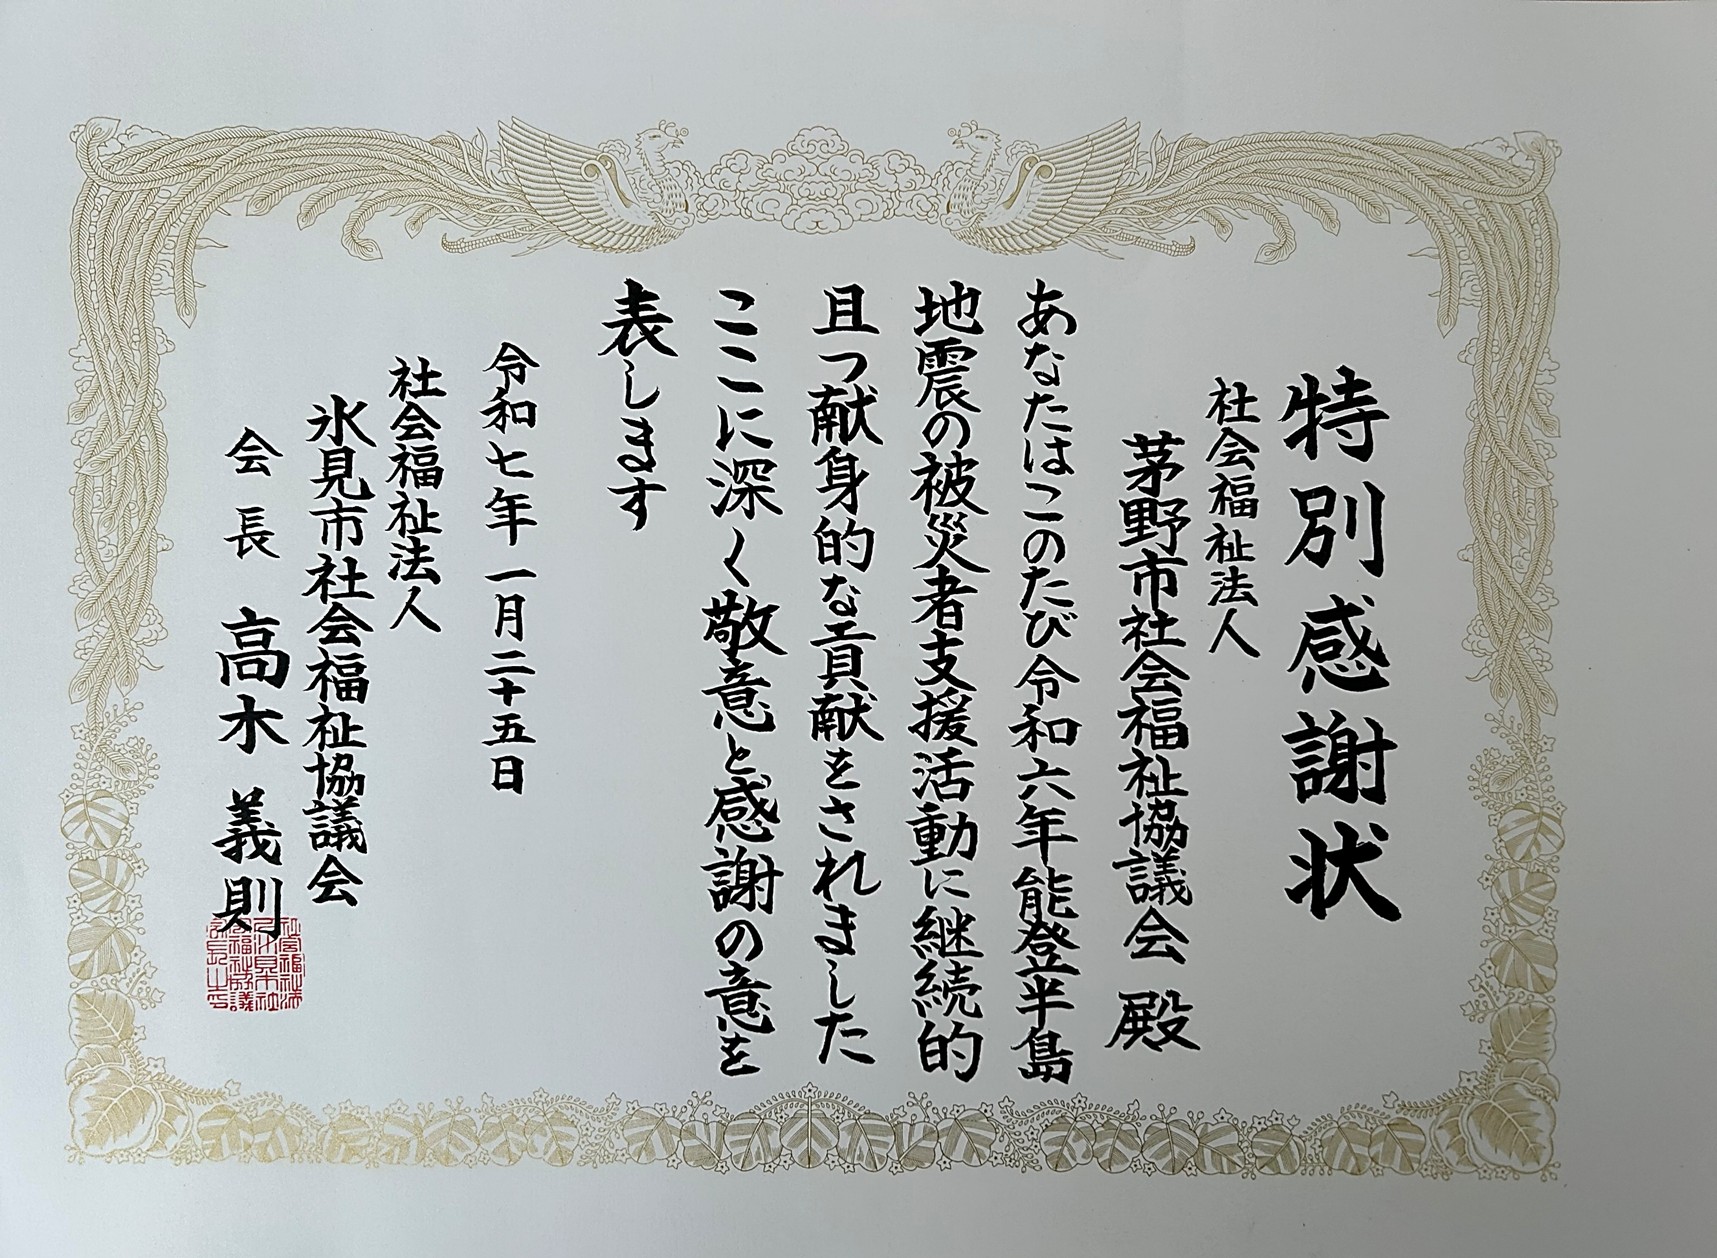 特別感謝状
社会福祉法人
茅野市社会福祉協議会 殿
あなたはこのたび令和六年能登半島
地震の被災者支援活動に継続的
且つ献身的な貢献をされました
ここに深く敬意と感謝の意を
表します
令和七年一月二十五日
社会福祉法人
氷見市社会福祉協議会
会長 高木義則